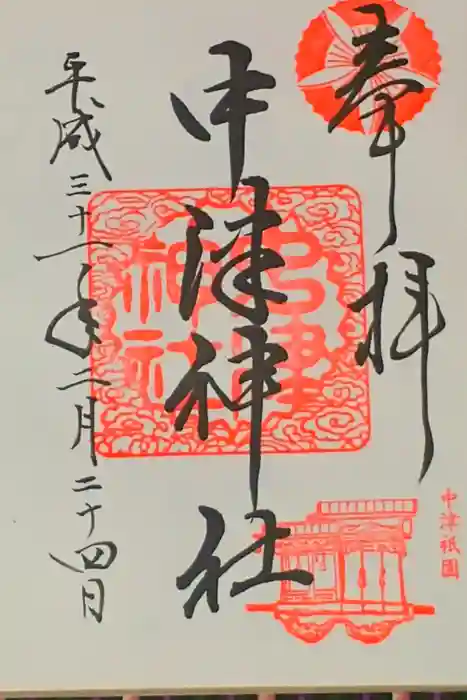 奉拝
中津神社
中津神社
中津祇園
平成三十一年二月二十四日